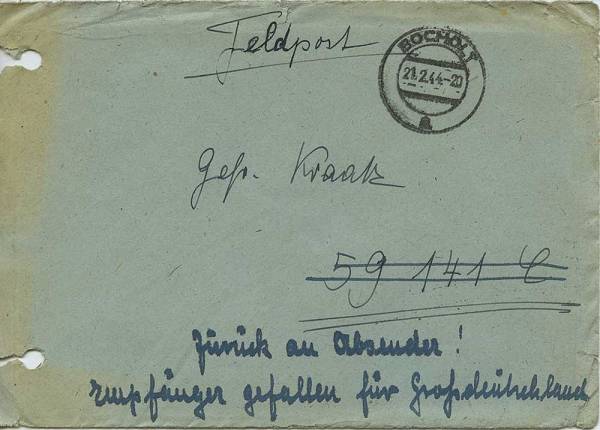 Feldpost
BOCHOLT
21.2.44-20
a
Gefr. Kraatz
59 141 C
Zurück an Absender!
Empfänger gefallen für Großdeutschland